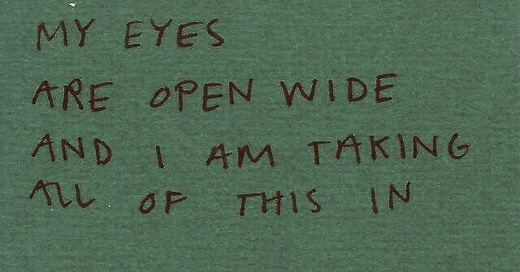 MY EYES
ARE OPEN WIDE
AND I AM TAKING
ALL OF THIS IN